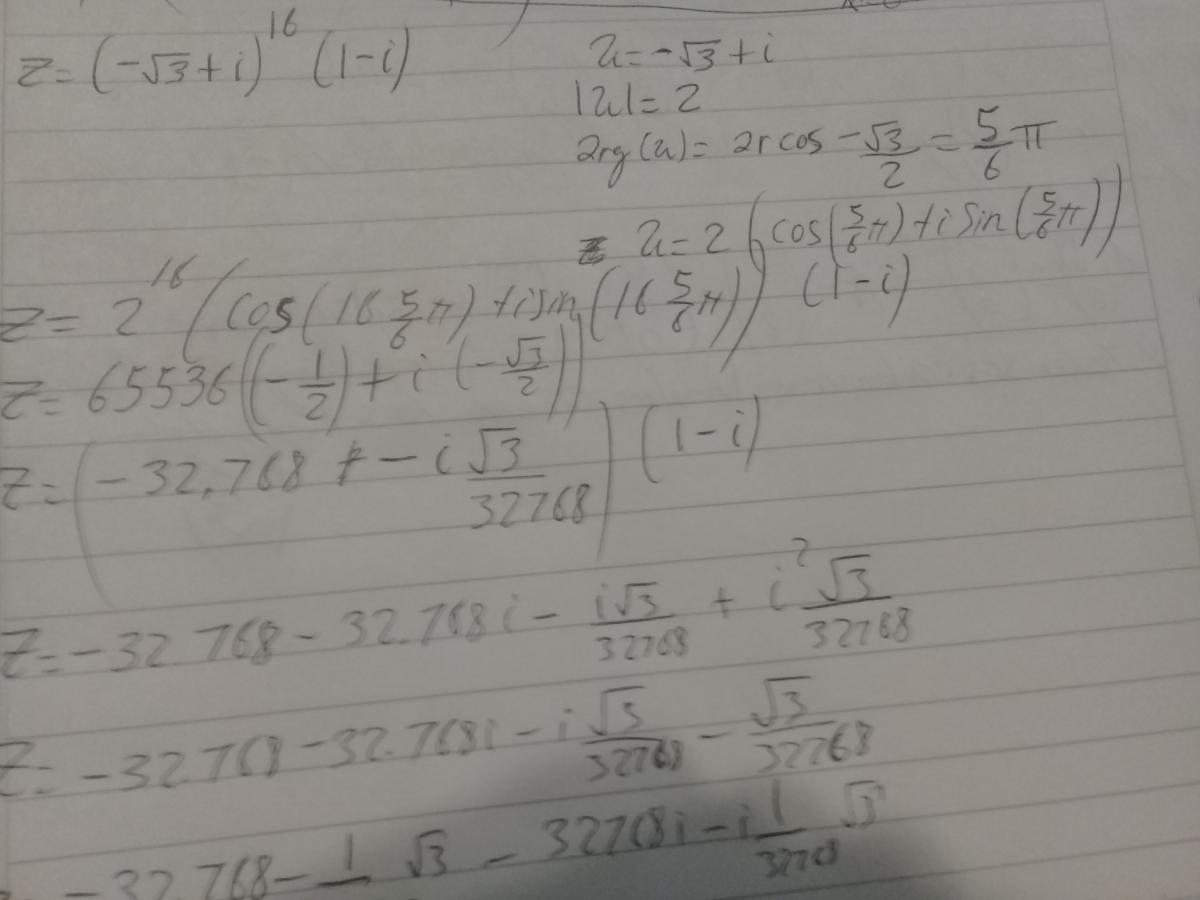 z = (-√3 + i)^16 (1-i)
u = -√3 + i
|u| = 2
arg(u) = arcos -√3/2 = 5/6 π
u = 2 (cos(5/6 π) + i sin(5/6 π))
z = 2^16 (cos(16 5/6 π) + i sin(16 5/6 π)) (1-i)
z = 65536 ((-1/2) + i (-√3/2))
z = (-32.768 - i √3/32768) (1-i)
z = -32.768 - 32.768i - i√3/32768 + i² √3/32768
z = -32.768 - 32.768i - i √3/32768 - √3/32768
-32.768 - 1/ √3 - 32768i - i 1/32768 √3